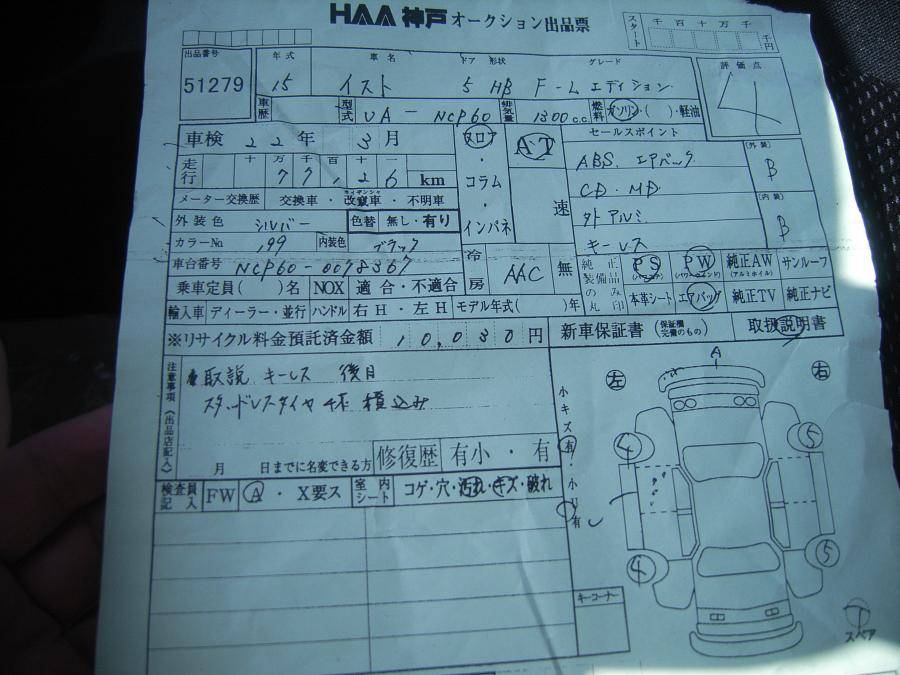 HAA神戸オークション出品票
スタート 千 百 十 万 千 千円
出品番号 51279
年式 15
車名 イスト
ドア 形状 5 HB
グレード F-Lエディション
評価点 4
車歴
型式 UA-NCP60
排気量 1300c.c.
燃料 ガソリン・( )・軽油
車検 22年 3月
走行 十 万 千 百 十 一
77,26 km
メーター交換歴 交換車・改竄車・不明車
カイザンシャ
外装色 シルバー 色替 無し・有り
カラーNo 199 内装色 ブラック
車台番号 NCP60-0078367
乗車定員( )名 NOX 適合・不適合
輸入車 ディーラー・並行 ハンドル 右H・左H モデル年式( )年
フロア・コラム・インパネ
AT
速
冷房 AAC 無
セールスポイント
ABS エアバック
CD・MD
外アルミ
キーレス
[外装] B
[内装] B
純正装備品のみ丸印
PS PW 純正AW サンルーフ
(パワステ) (パワーウインド) (アルミホイル)
本革シート エアバッグ 純正TV 純正ナビ
※リサイクル料金預託済金額 10,030円
新車保証書 (保証欄完備のもの) 取扱説明書
注意事項《出品店記入》
取説 キーレス 後日
スタッドレスタイヤ 4本 積込み
月 日までに名変できる方
修復歴 有小・有
検査員記入 FW A・X要ス
室内シート コゲ・穴・汚れ・キズ・破れ
小キズ有・小U有
キーコーナー
左 右
A
4 5
4 5
スペア